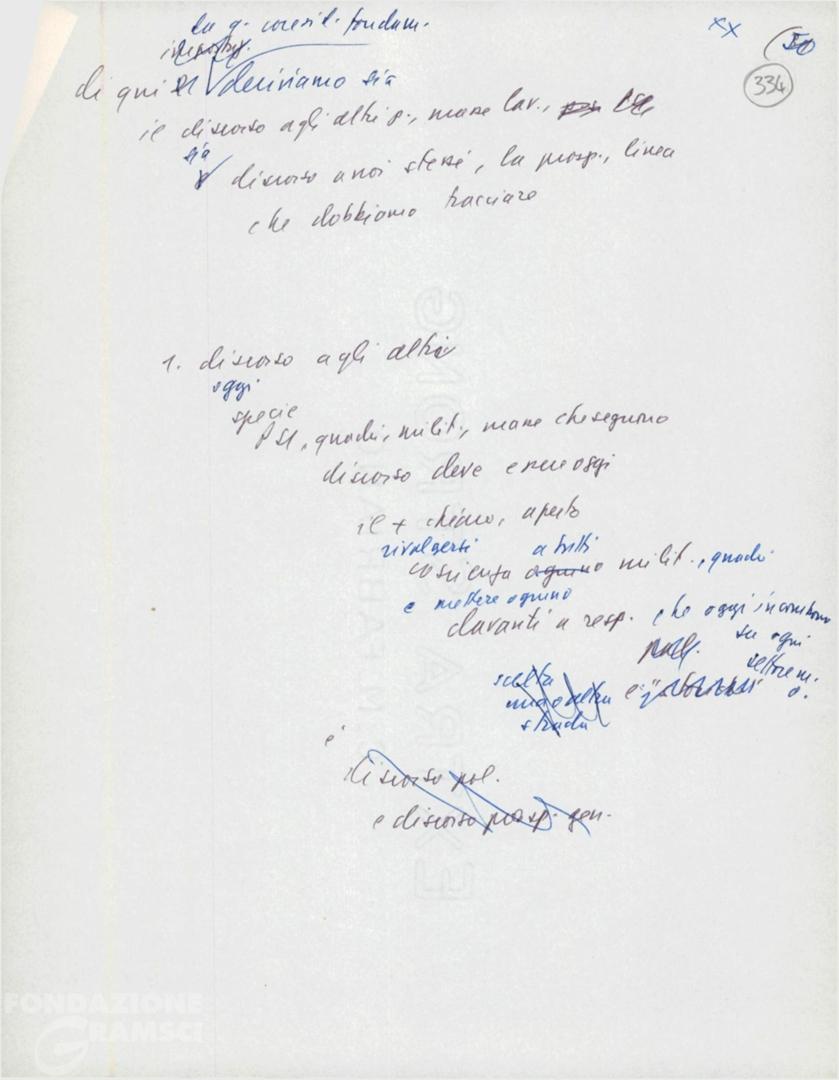 xx
50
334
da q. consid. fondam.
di qui deriviamo sia
il discorso agli altri p., masse lav.,
sia
discorso a noi stessi, la prosp., linea
che dobbiamo tracciare
1. discorso agli altri
oggi
specie
PSI, quadri, milit., masse che seguono
discorso deve essere oggi
il + chiaro, aperto
rivolgersi a tutti
coscienza ognuno milit., quadri
e mettere ognuno
davanti a resp. che oggi incombono
su ogni
settore m.
o.
scelta
una o altra e
strada
è
discorso pol.
e discorso prosp. gen.
FONDAZIONE
GRAMSCI